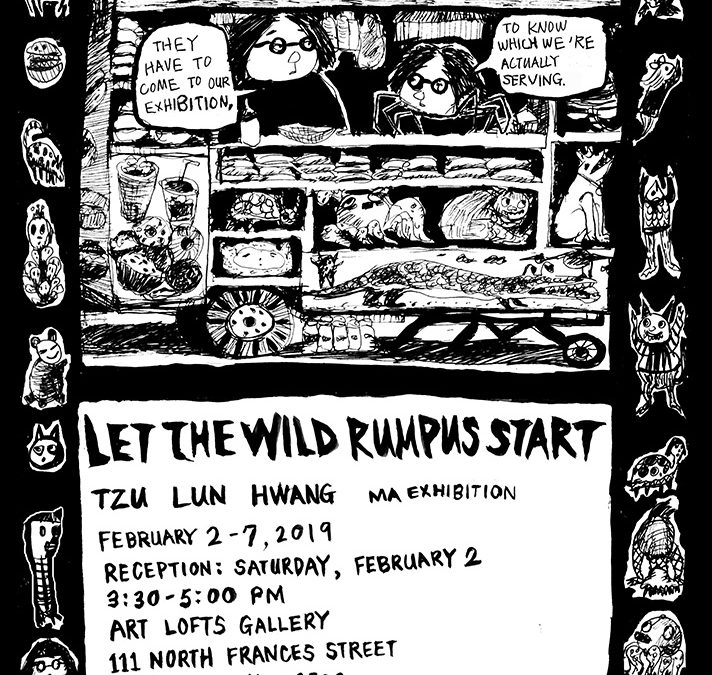 THEY
HAVE TO
COME TO OUR
EXHIBITION,
TO KNOW
WHICH WE'RE
ACTUALLY
SERVING.
LET THE WILD RUMPUS START
TZU LUN HWANG MA EXHIBITION
FEBRUARY 2-7, 2019
RECEPTION: SATURDAY, FEBRUARY 2
3:30-5:00 PM
ART LOFTS GALLERY
111 NORTH FRANCES STREET